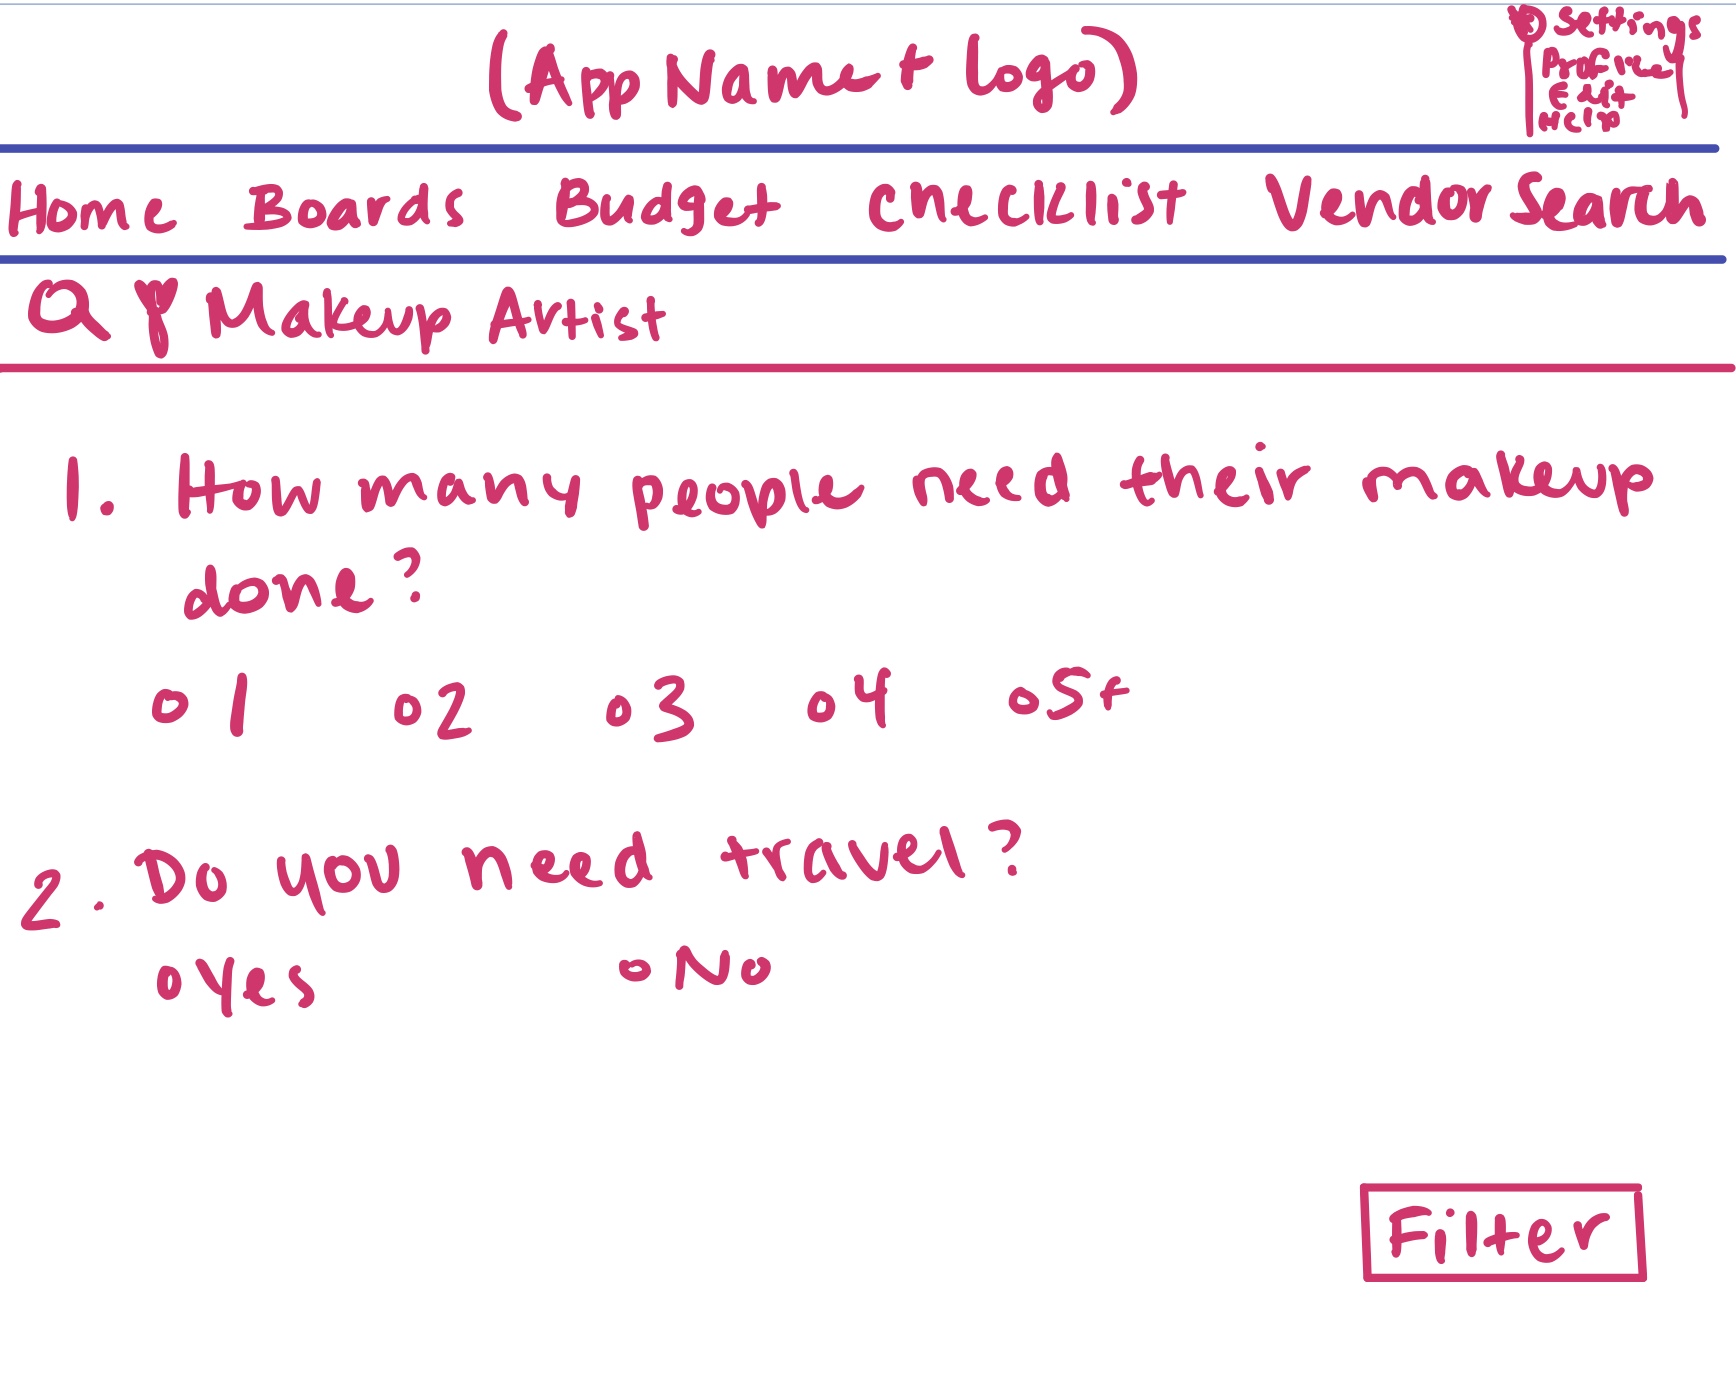 (App Name + Logo)
Settings
Profile
Exit
Help
Home Boards Budget Checklist Vendor Search
Makeup Artist
1. How many people need their makeup
done?
1 2 3 4 5+
2. Do you need travel?
Yes No
Filter